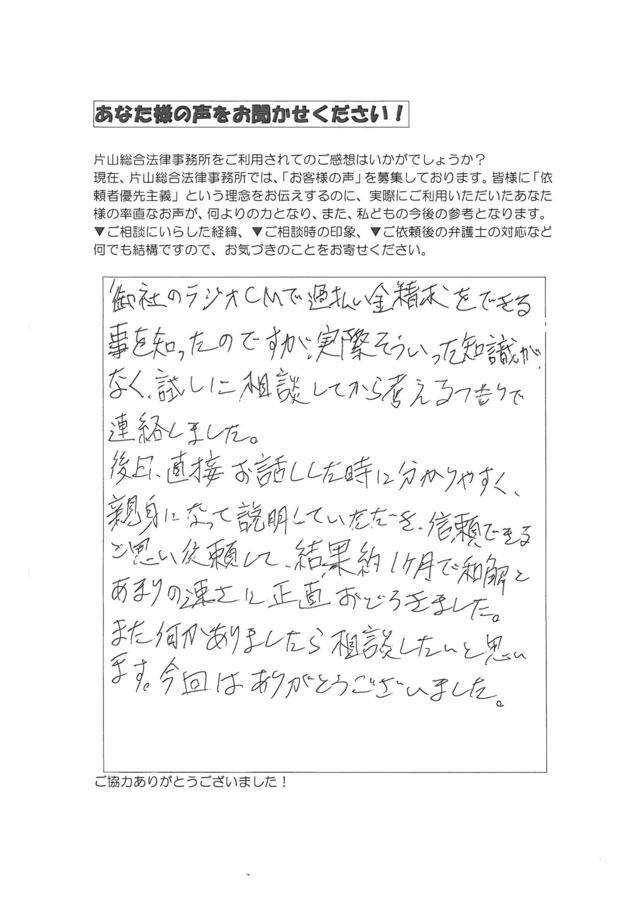 あなた様の声をお聞かせください！
片山総合法律事務所をご利用されてのご感想はいかがでしょうか？
現在、片山総合法律事務所では、「お客様の声」を募集しております。皆様に「依
頼者優先主義」という理念をお伝えするのに、実際にご利用いただいたあなた
様の率直なお声が、何よりの力となり、また、私どもの今後の参考となります。
▼ご相談にいらした経緯、▼ご相談時の印象、▼ご依頼後の弁護士の対応など
何でも結構ですので、お気づきのことをお寄せください。
御社のラジオCMで過払い金請求をできる
事を知ったのですが、実際そういった知識が
なく、試しに相談してから考えるつもりで
連絡しました。
後日、直接お話しした時に分かりやすく、
親身になって説明していただき、信頼できる
と思い依頼して、結果約1ヶ月で和解と
あまりの速さに正直おどろきました。
また何かありましたら相談したいと思い
ます。今回はありがとうございました。
ご協力ありがとうございました！